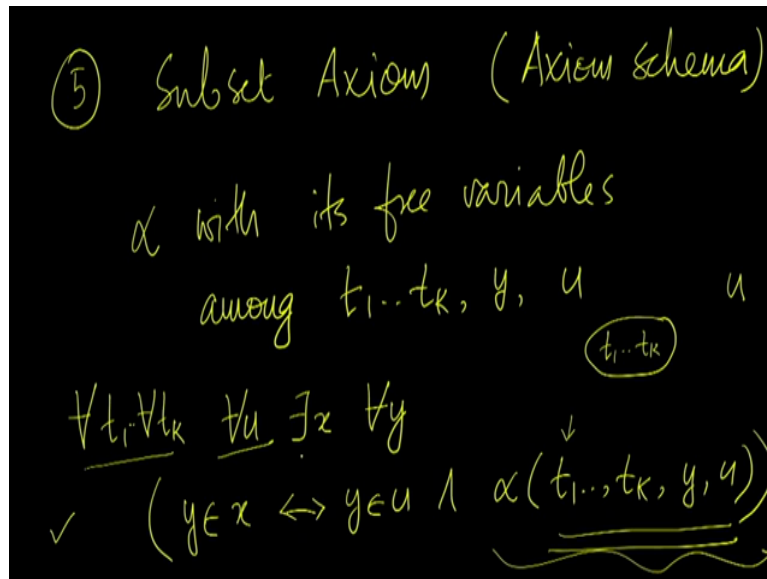 ⑤ Subset Axiom (Axiom schema)
α with its free variables
among t₁..tₖ, y, u u
t₁..tₖ
∀t₁..∀tₖ ∀u ∃x ∀y
✓ (y∈x ↔ y∈u ∧ α(t₁..,tₖ, y, u))